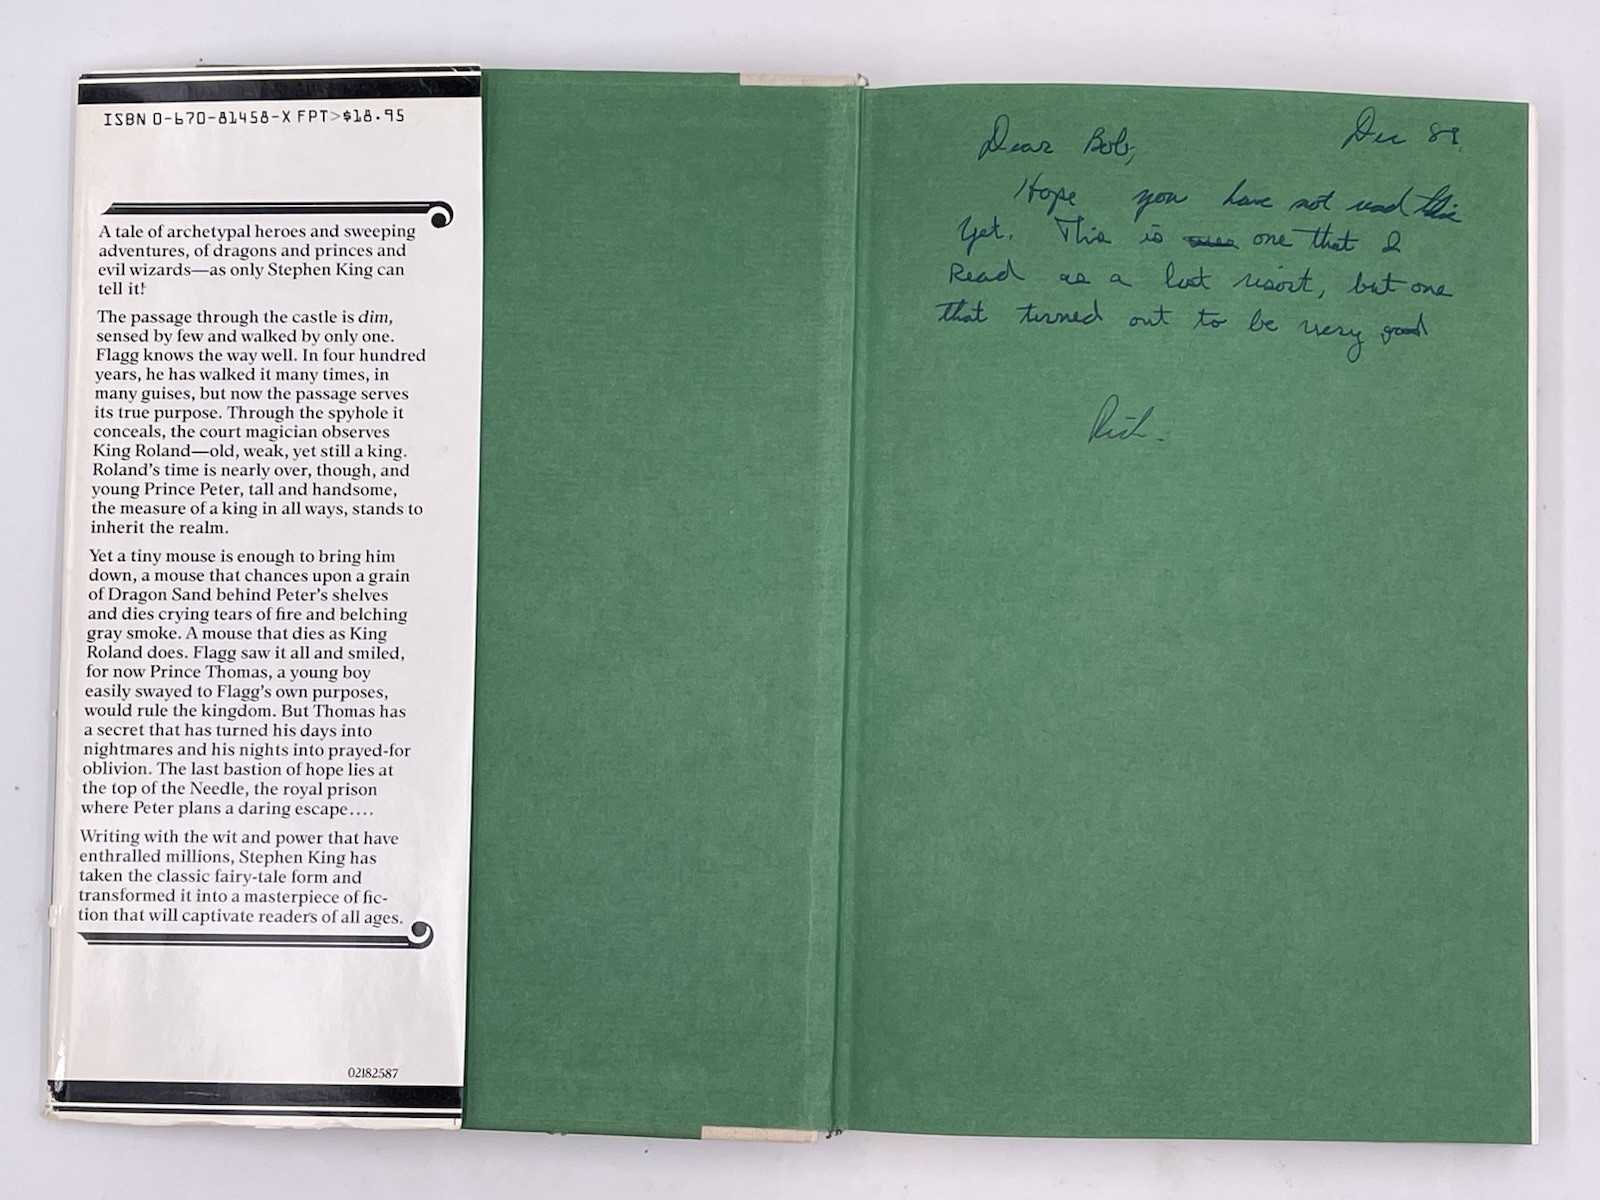 ISBN 0-670-81458-X FPT>$18.95
A tale of archetypal heroes and sweeping
adventures, of dragons and princes and
evil wizards—as only Stephen King can
tell it!
The passage through the castle is dim,
sensed by few and walked by only one.
Flagg knows the way well. In four hundred
years, he has walked it many times, in
many guises, but now the passage serves
its true purpose. Through the spyhole it
conceals, the court magician observes
King Roland—old, weak, yet still a king.
Roland's time is nearly over, though, and
young Prince Peter, tall and handsome,
the measure of a king in all ways, stands to
inherit the realm.
Yet a tiny mouse is enough to bring him
down, a mouse that chances upon a grain
of Dragon Sand behind Peter's shelves
and dies crying tears of fire and belching
gray smoke. A mouse that dies as King
Roland does. Flagg saw it all and smiled,
for now Prince Thomas, a young boy
easily swayed to Flagg's own purposes,
would rule the kingdom. But Thomas has
a secret that has turned his days into
nightmares and his nights into prayed-for
oblivion. The last bastion of hope lies at
the top of the Needle, the royal prison
where Peter plans a daring escape....
Writing with the wit and power that have
enthralled millions, Stephen King has
taken the classic fairy-tale form and
transformed it into a masterpiece of fic-
tion that will captivate readers of all ages.
02182587
Dear Bob, Dec
Hope you have not read this
yet. This is one that I
Read as a last resort, but one
that turned out to be very good
Rich.